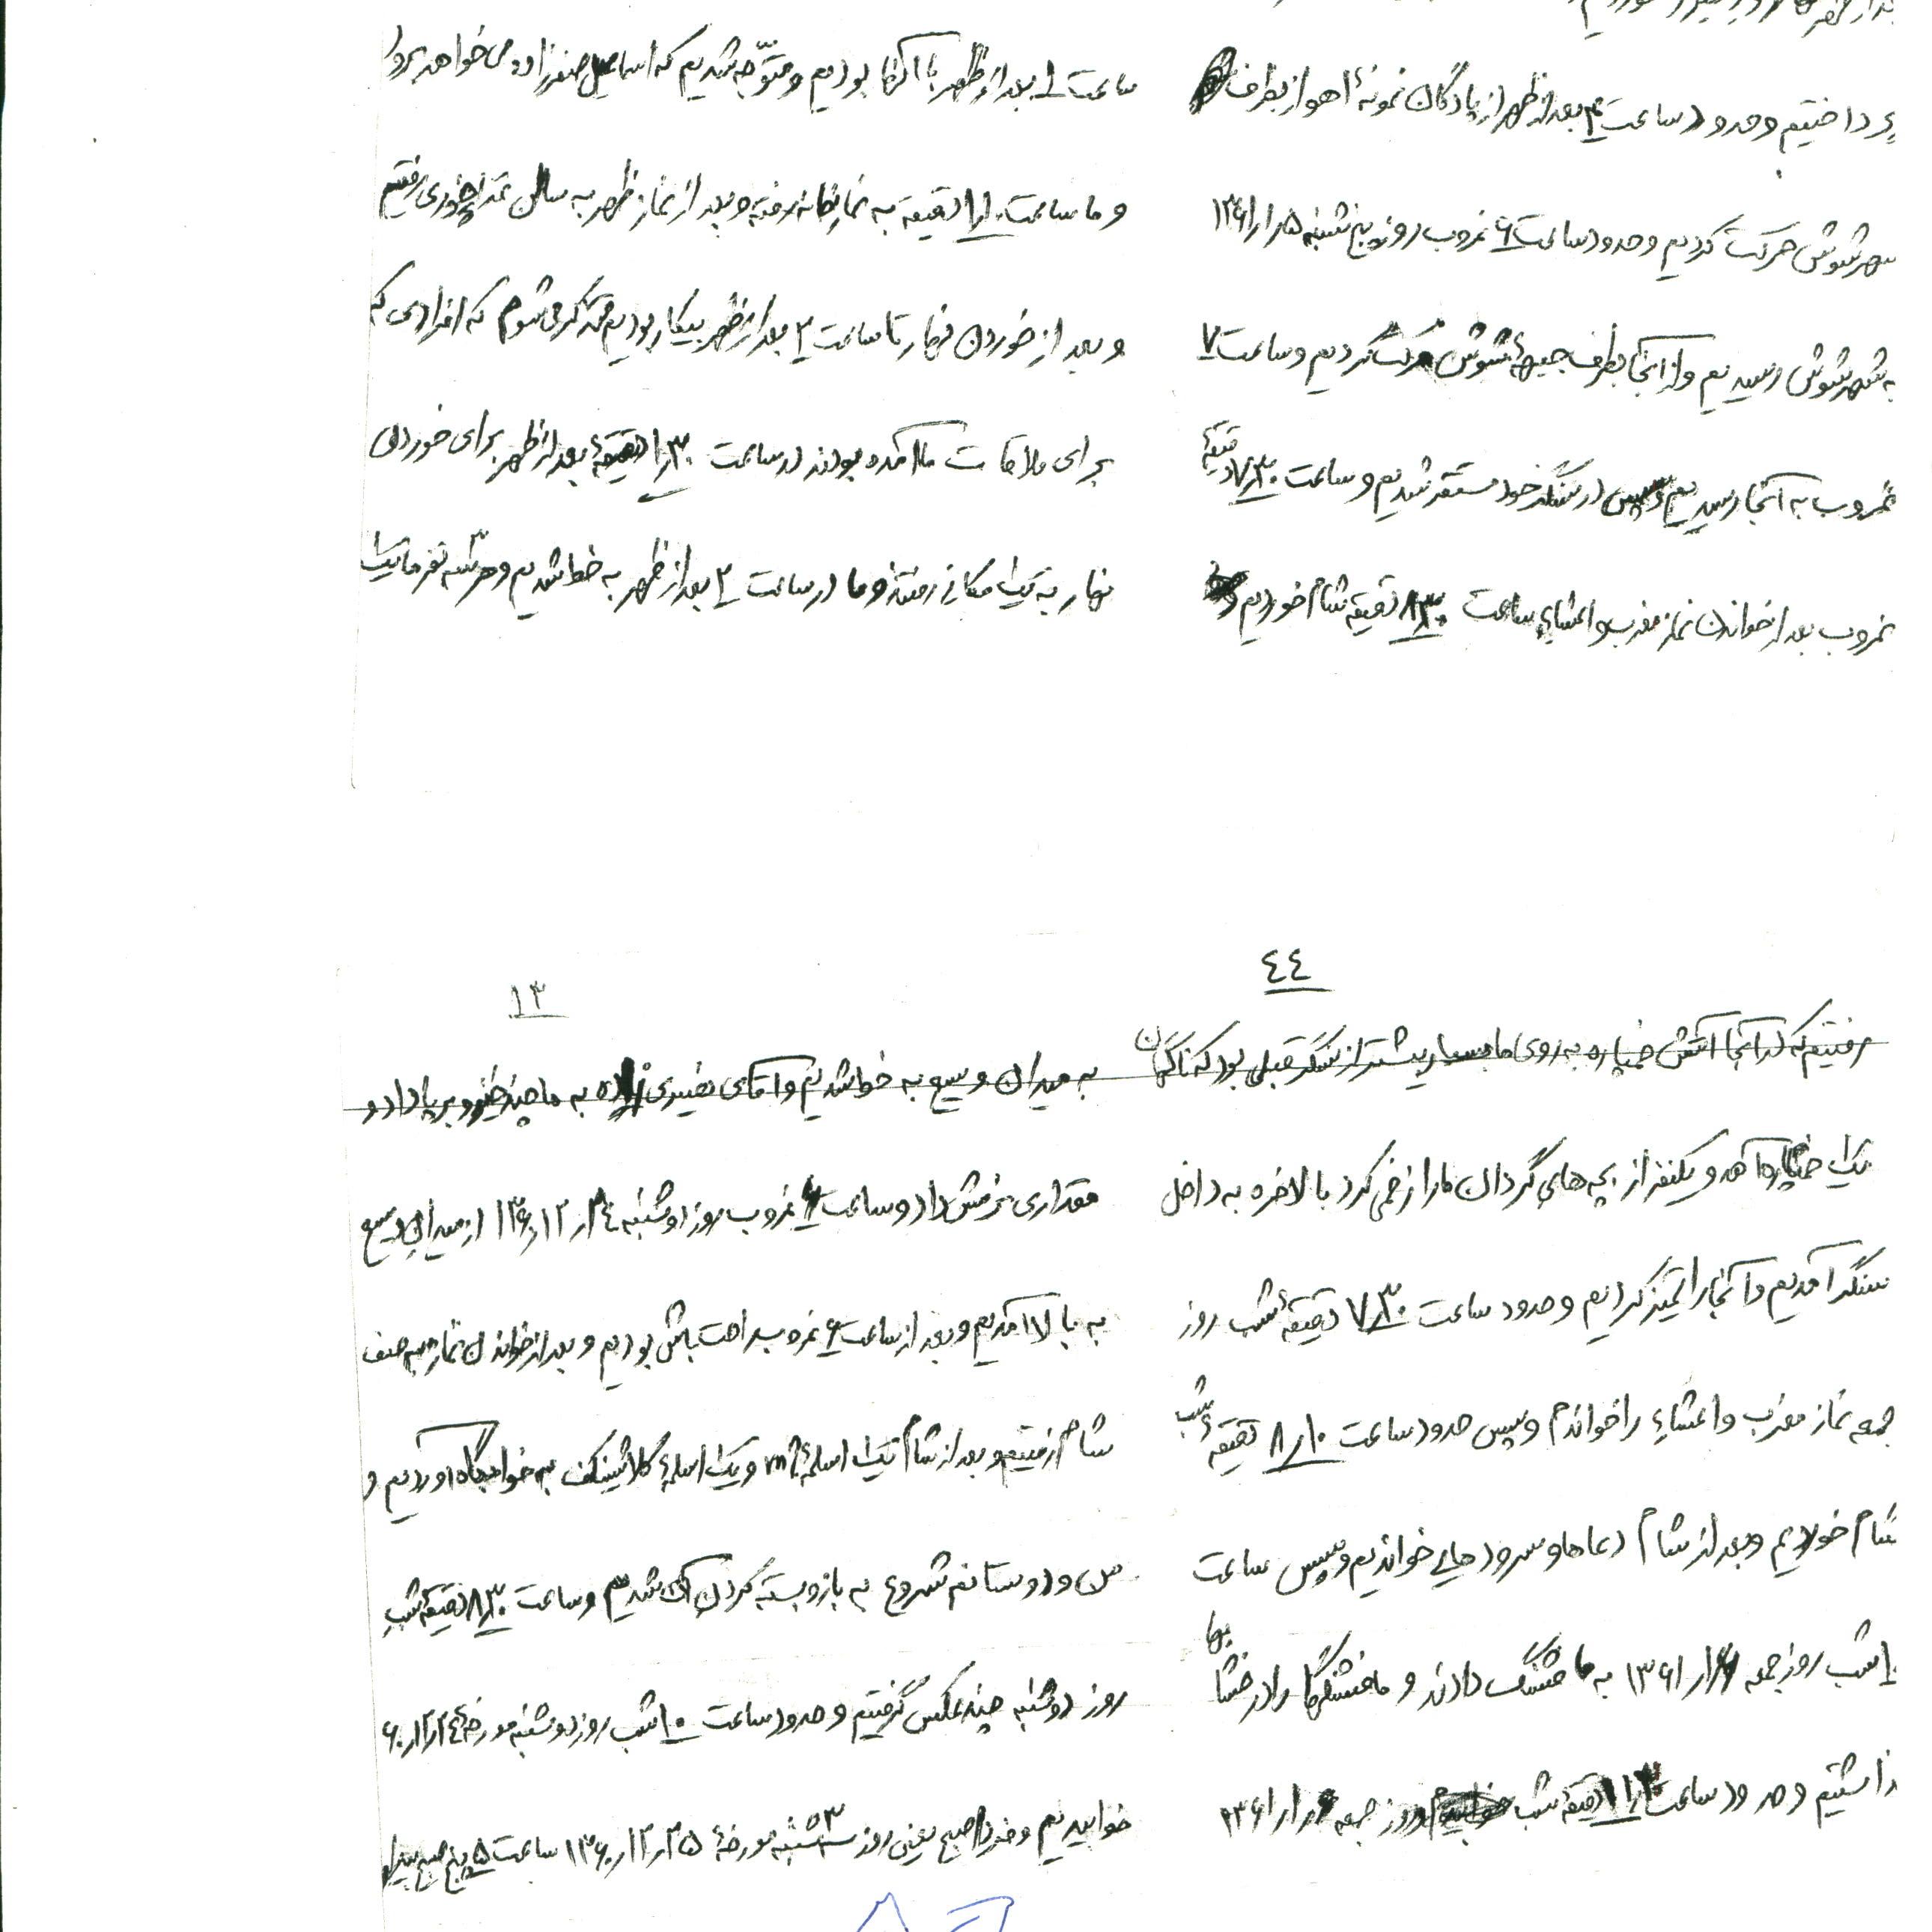 پرداختیم و حدود ساعت ۴ بعد از ظهر از پادگان نمونهٔ اهواز بطرف
شهر شوش حرکت کردیم و حدود ساعت ۶ غروب روز پنج شنبه ۵ر۱ر۱۳۶۱
به شهر شوش رسیدیم و از آنجا بطرف جبههٔ شوش حرکت کردیم و ساعت ۷
غروب به آنجا رسیدیم و سپس در سنگر خود مستقر شدیم و ساعت ۷ر۳۰ دقیقهٔ
غروب بعد از خواندن نماز مغرب و اعشاء ساعت ۸ر۳۰ دقیقه شام خوردیم و
ساعت ۱ بعد از ظهر با آنها بودیم و متوّجه شدیم که اسماعیل صفرزاده می خواهد برود
و ما ساعت ۱ر۱۰ دقیقه به نمازخانه رفته و بعد از نماز ظهر به سالن غذاخوری رفتیم
و بعد از خوردن نهار تا ساعت ۲ بعد از ظهر بیکار بودیم متذکر می شوم که افرادی که
برای ملاقات ما آمده بودند در ساعت ۱ر۳۰ دقیقهٔ بعد از ظهر برای خوردن
نهار به یک مکانی رفتند و ما در ساعت ۲ بعد از ظهر به خط شدیم و هر سه نفر ما یک
٤٤
رفتیم که در آنجا آتش خمپاره به روی ما بسیار بیشتر از سنگر قبلی بود که ناگهان
یک خمپاره آمد و یکنفر از بچه های گردان ما را زخمی کرد بالاخره به داخل
سنگر آمدیم و آنجا را تمیز کردیم و حدود ساعت ۷ر۳۰ دقیقهٔ شب روز
جمعه نماز مغرب و اعشاء را خواندم و سپس حدود ساعت ۸ر۱۰ دقیقهٔ شب
شام خوردیم و بعد از شام دعاها و سرودهایی خواندیم و سپس ساعت
۱۰ شب روز جمعه ۶ر۱ر۱۳۶۱ به ما فشنگ دادند و ما فشنگها را در خشابها
گذاشتیم و حدود ساعت ۱۱ر۳۰ دقیقهٔ شب روز جمعه ۶ر۱ر۱۳۶۱
۱۳
به میدان وسیع به خط شدیم و آقای نصیری زاده به ما چند خیز و برپا داد و
مقداری نرمش داد و ساعت ۶ غروب روز دوشنبه ۲٤ر۱۲ر۱۳۶۰ از میدان وسیع
به بالا آمدیم و بعد از ساعت ۶ غروب راحت باش بودیم و بعد از خواندن نماز به صف
شام رفتیم و بعد از شام یک اسلحهٔ و یک اسلحهٔ کلاشینکف به خوابگاه آوردیم و
من و دوستانم شروع به باز و بسته کردن آن شدیم و ساعت ۸ر۳۰ دقیقهٔ شب
روز دوشنبه چند عکس گرفتیم و حدود ساعت ۱۰ شب روز دوشنبه مورخهٔ ۲٤ر۱۲ر۶۰
خوابیدیم و فردا صبح یعنی روز سه شنبه مورخهٔ ۲۵ر۱۲ر۱۳۶۰ ساعت ۵ پنج صبح بیدار